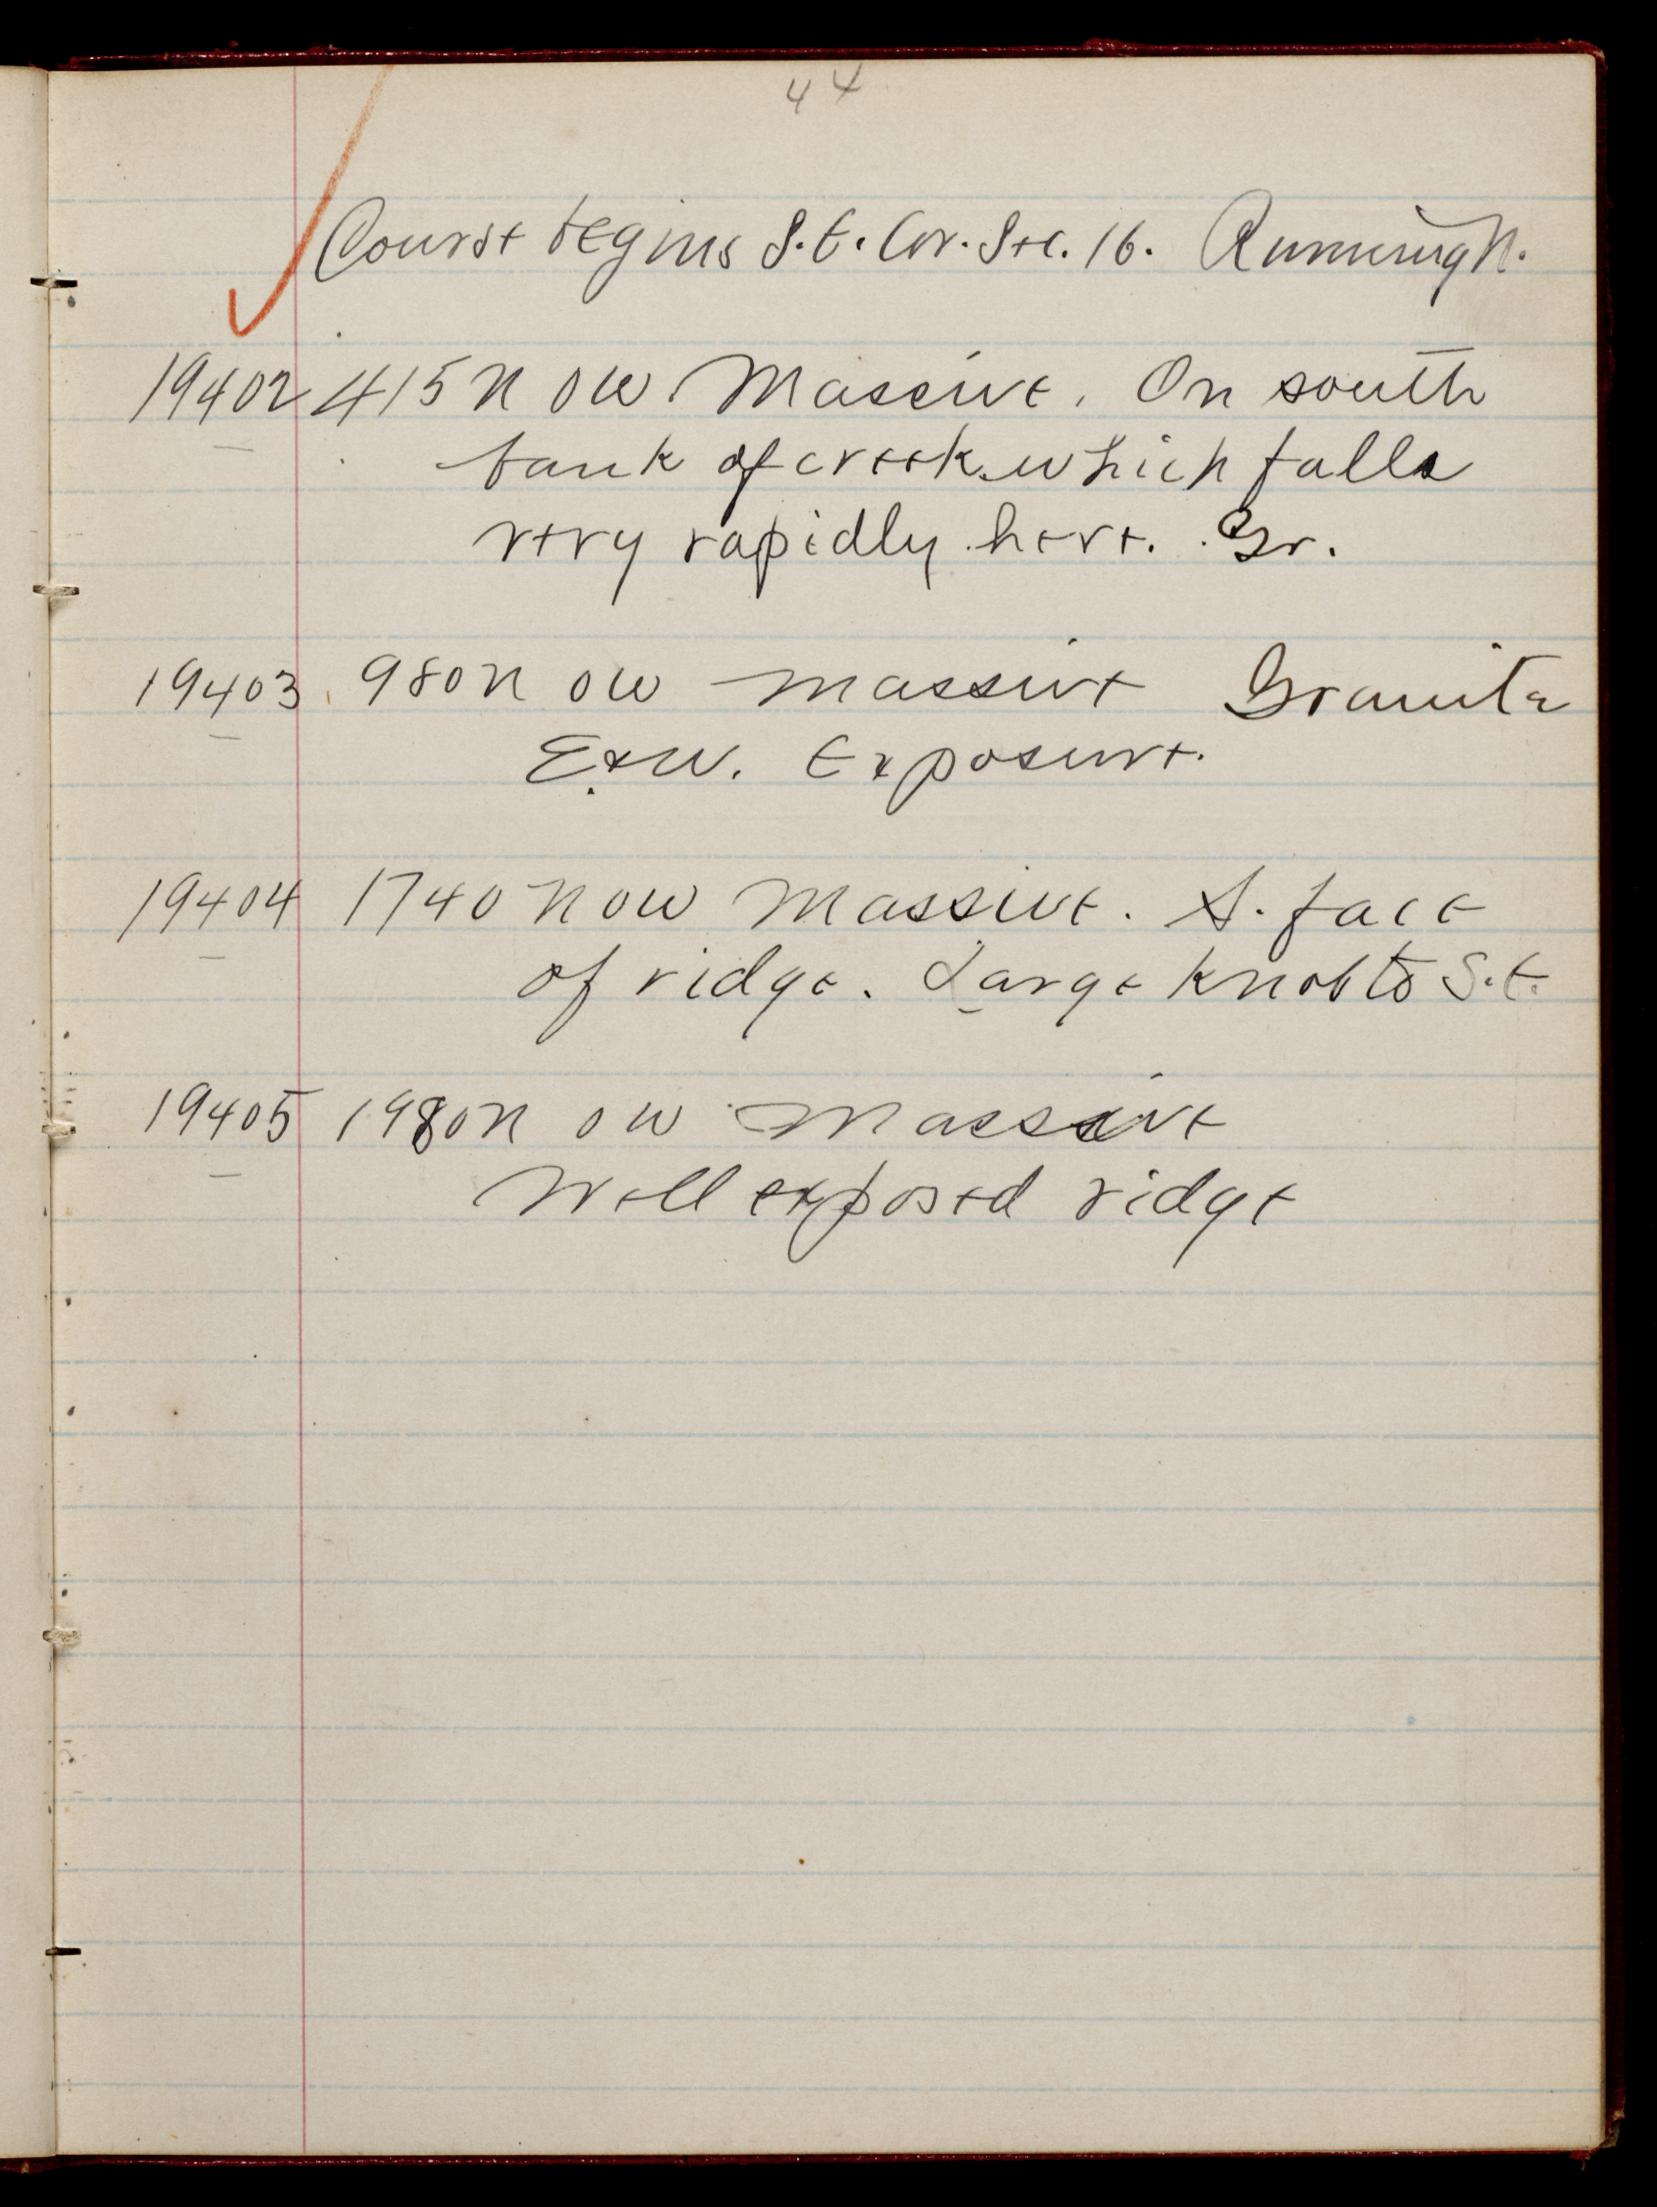 44
Course begins S.E. Cor. Sec. 16. Running N.
19402 415 N 0 W Massive. On south
bank of creek which falls
very rapidly here. Gr.
19403 980 N 0 W Massive Granite
E & W. Exposure.
19404 1740 N 0 W Massive. S. face
of ridge. Large knob to S.E.
19405 1980 N 0 W Massive
Well exposed ridge